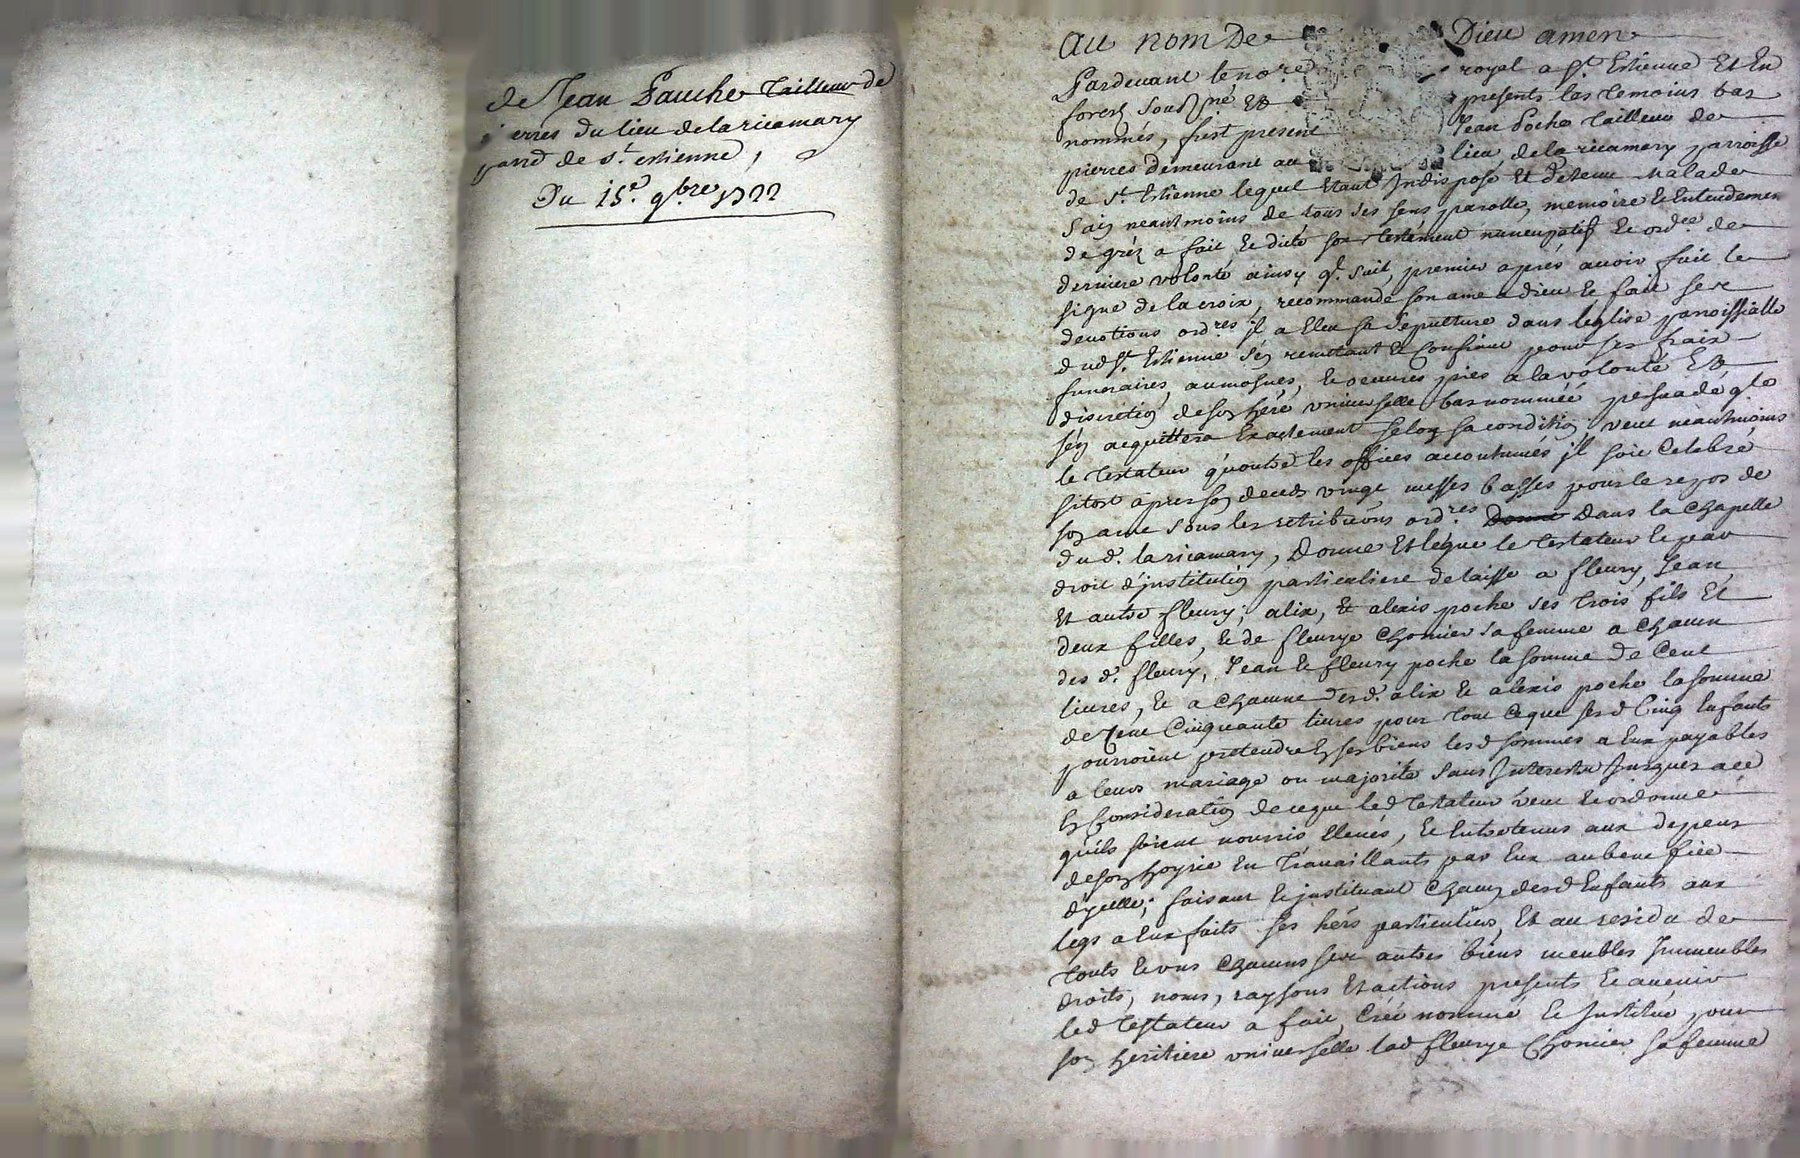 de Jean Pauche Tailleur de
pierres du lieu de la ricamary
parr de St. estienne,
Du 15e. 9bre 1722
Au nom De Dieu amen
Pardevant le nore royal a St. Estienne Et En
forest Sousné Et presents les Temoins bas
nommés, fust present Jean Poche Tailleur de
pierres demeurant au lieu de la ricamary parroisse
de St. Estienne lequel Etant Indisposé Et detenu Malade
Sain neantmoins de tous ses sens parolle, memoire & Entendemen
de gréz a fait & dicté son testement nuncupatif & ordce. de
derniere volonté ainsy qt. suit, premier aprés avoir fait le
signe de la croix, recommandé son ame a dieu & fait ses
devotions ordres il a Eleu sa Sepulture dans leglise parroissialle
dud St. Estienne S'en remettant & confiant pour ses fraix
funeraires, aumosnes, & oeuvres pies a la volonté Et
discretion de son here universelle bas nommée persuadé qle
s'en acquittera Exactement selon sa condition; veut neantmoins
le testateur qu'outre les offices accoutumés il soit Celebré
sitost apres son deceds vingt messes basses pour le repos de
son ame sous les retributions ordres Dans la Chapelle
du d. la ricamary, Donne Et legue le testateur & par
droit d'institution particuliere delaisse a fleury, Jean
Et autre fleury; alix, & alexis poche ses trois fils Et
deux filles, & de fleurye Chomier sa femme a Chacun
des d. fleury, Jean & fleury poche la somme de Cent
livres, & a Chacune desd. alix & alexis poche la somme
de Cent Cinquante livres pour tout Ce que sesd Cinq Enfants
pourroient pretendre En ses biens lesd sommes a Eux payables
a leurs mariage ou majorité sans Interests Jusques a ce
En Consideration de ce que led testateur veut & ordonne
quils soient nourris Elevés, & Entretenus aux depens
de son hoyrie En travaillants par Eux au benefice
d'ycelle; faisant & instituant Chacun desd Enfants aux
legs a Eux faits ses hers particuliers, Et au residu de
touts & uns Chacuns ses autres biens meubles Immeubles
droits, noms, raysons Et actions presents & avenir
led Testateur a fait, Créé nommé & Institué pour
son heritiere universelle lad fleurye Chomier sa femme